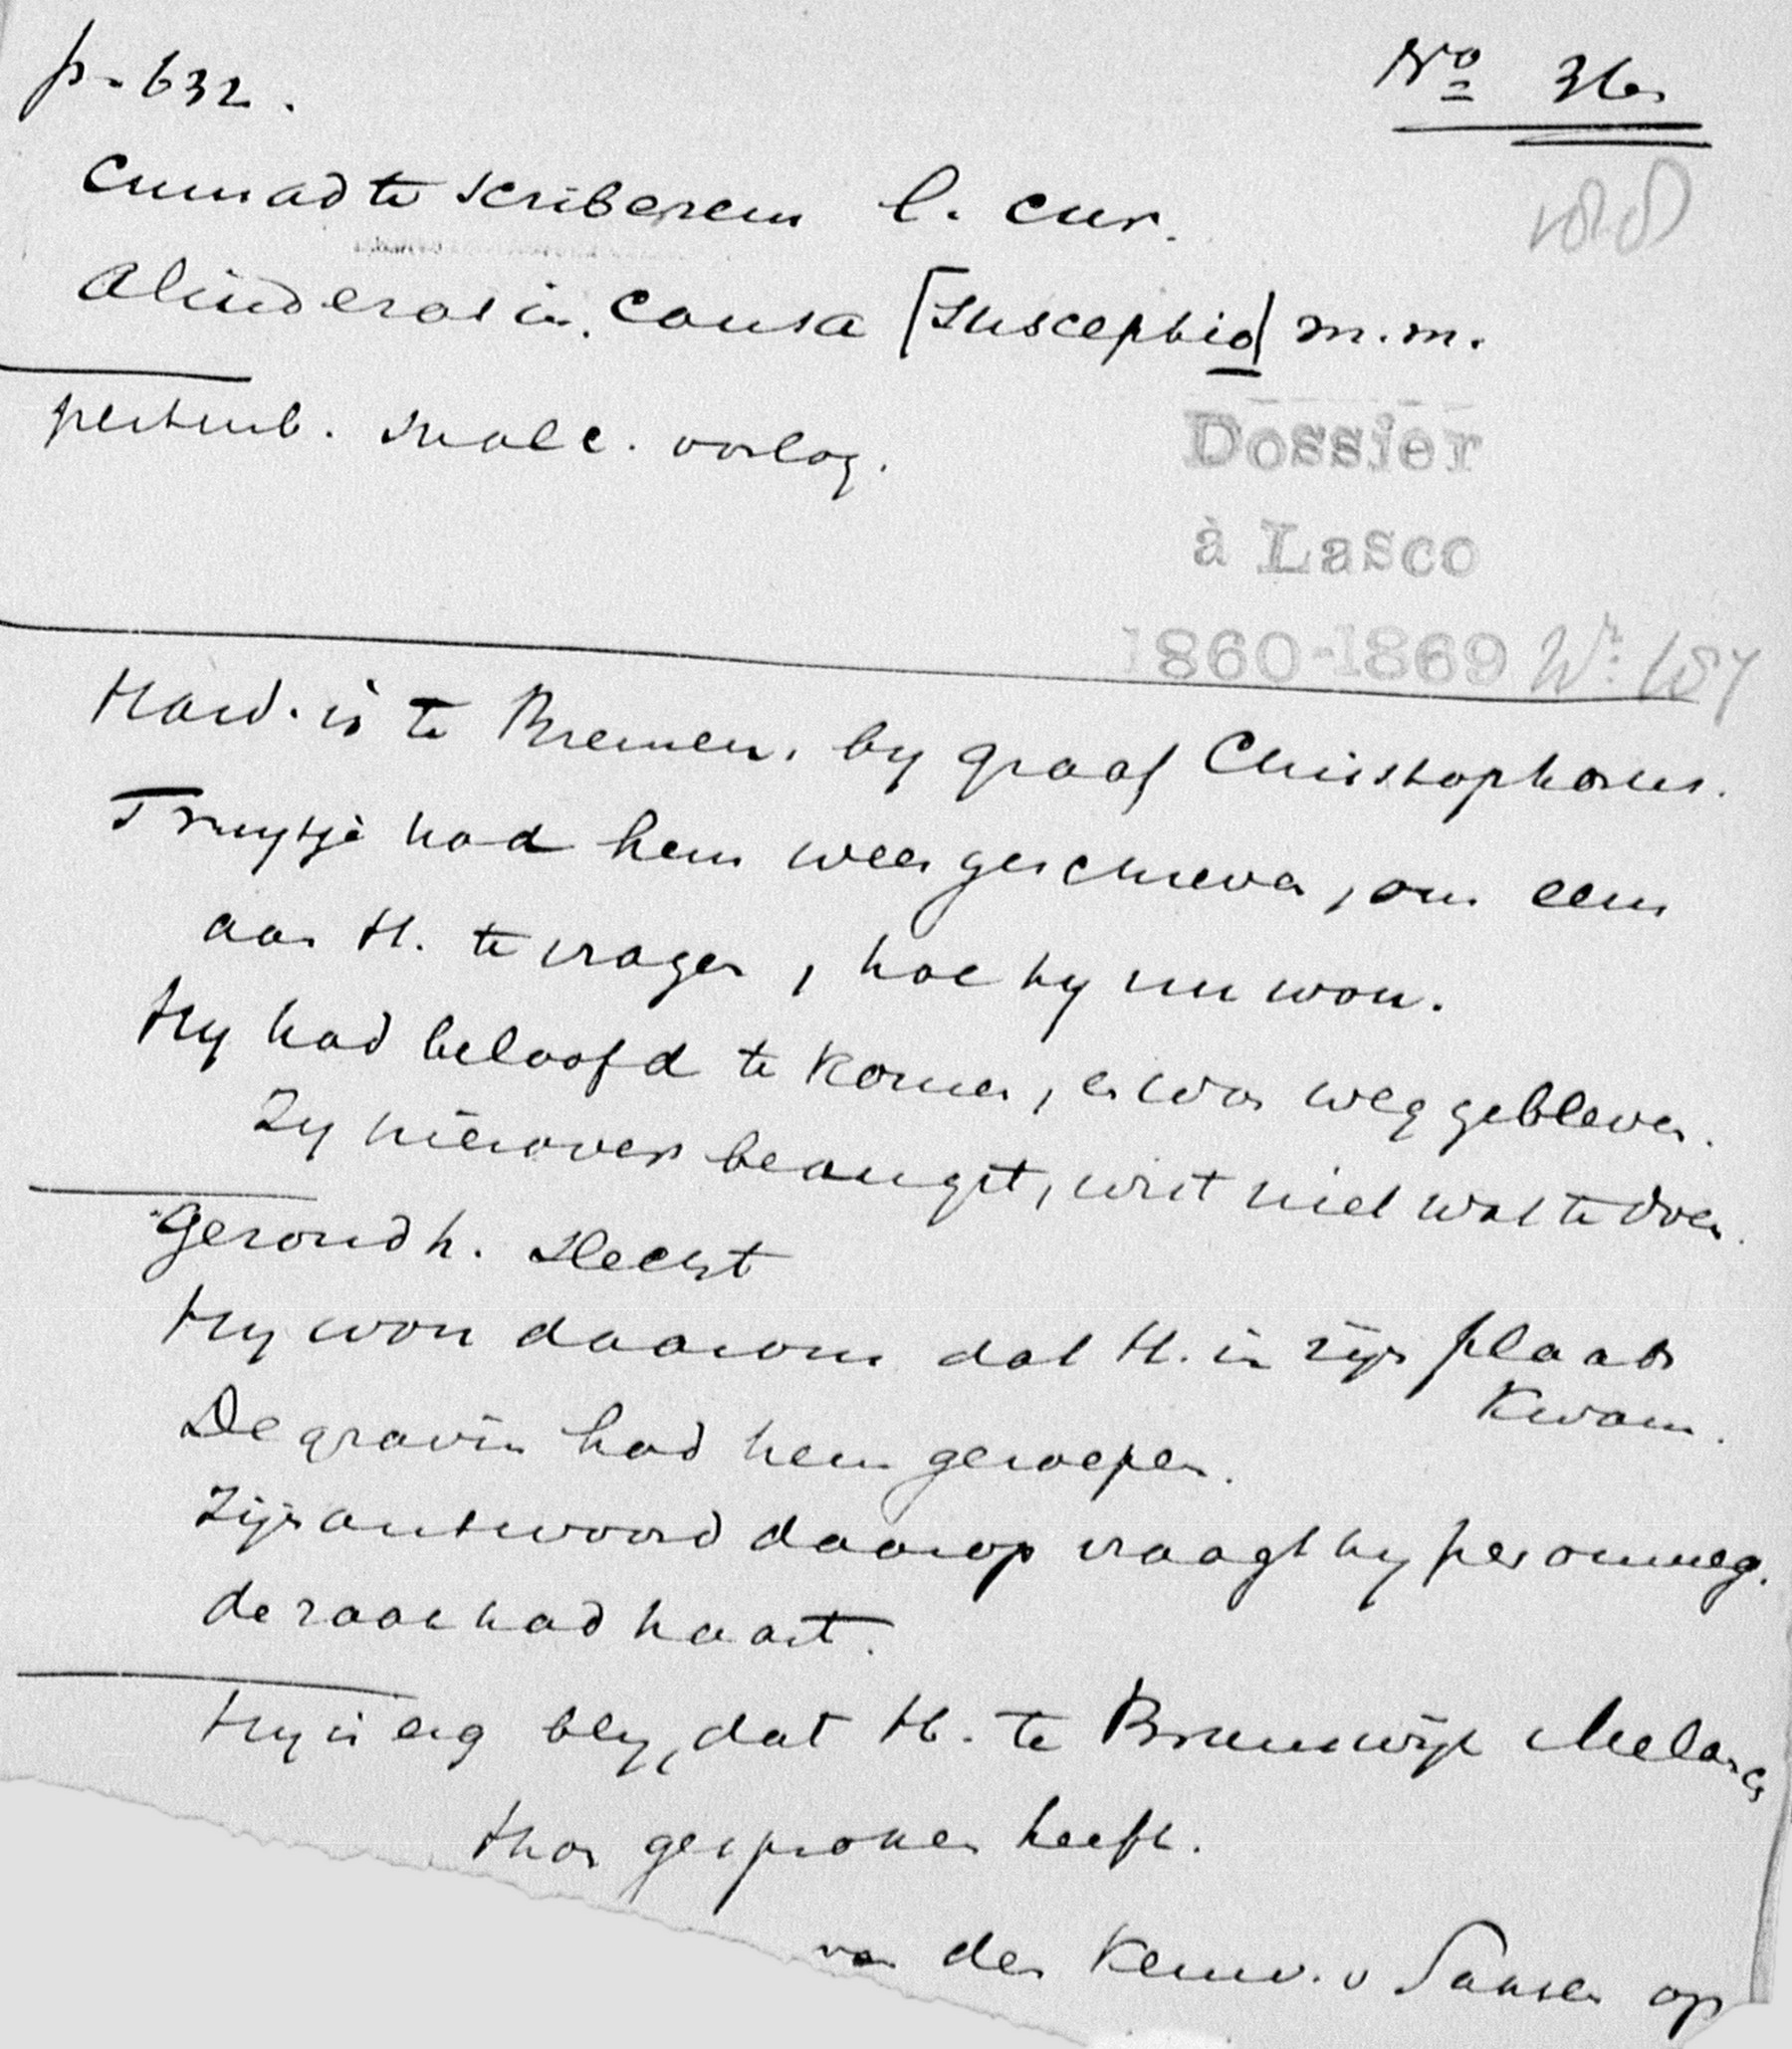 p. 632.
No 36
Cum ad te scriberem l. cur.
causa [susceptio] m.m.
perturb. male. oorlog.
Dossier
à Lasco
1860-1869
Hard. is te Bremen, by graaf Christophorus.
Truytje had hem weer geschreven, om eens
aan H. te vragen, hoe hy nu wou.
Hy had beloofd te komen, en was weggebleven.
Zy hierover beangst, wist niet wat te doen.
Gezondh. slecht
Hy wou daarom dat H. in zijn plaats
kwam.
De gravin had hem geroepen.
Zijn antwoord daarop vraagt hy per omneg.
de zaak had haast.
Hy is erg bly, dat H. te Brunswijk Melanch
thon gesproken heeft.
van den Keurv. v Saksen op